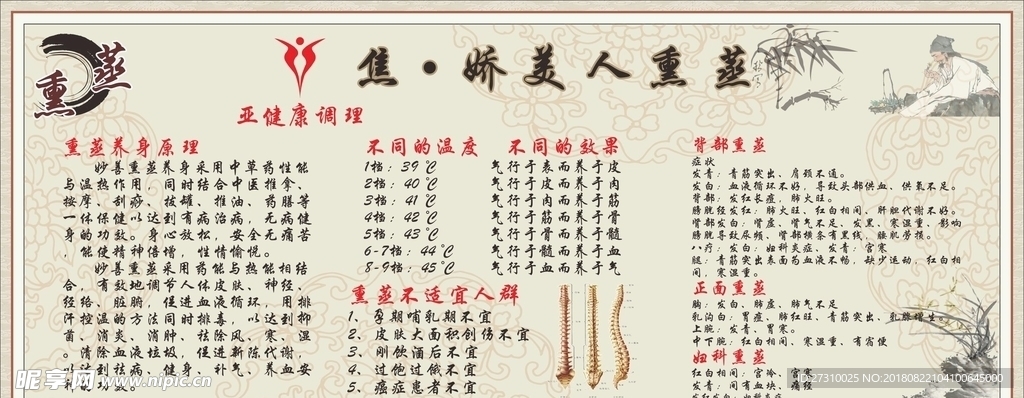 熏蒸
焦·娇美人熏蒸
亚健康调理
熏蒸养身原理
妙善熏蒸养身采用中草药性能
与温热作用，同时结合中医推拿、
按摩、刮痧、拔罐、推油、药膳等
一体保健以达到有病治病，无病健
身的功效。身心放松，安全无痛苦
，能使精神倍增，性情愉悦。
妙善熏蒸采用药能与热能相结
合，有效地调节人体皮肤、神经、
经络、脏腑，促进血液循环，用排
汗控温的方法同时排毒，以达到抑
菌、消炎、消肿、祛除风、寒、湿
。清除血液垃圾，促进新陈代谢，
以达到祛病、健身、补气、养血安
神的功效。
不同的温度 不同的效果
1档：39℃ 气行于表而养于皮
2档：40℃ 气行于皮而养于肉
3档：41℃ 气行于肉而养于筋
4档：42℃ 气行于筋而养于骨
5档：43℃ 气行于骨而养于髓
6-7档：44℃ 气行于髓而养于血
8-9档：45℃ 气行于血而养于气
熏蒸不适宜人群
1、孕期哺乳期不宜
2、皮肤大面积创伤不宜
3、刚饮酒后不宜
4、过饱过饿不宜
5、癌症患者不宜
背部熏蒸
症状
发青：青筋突出、肩颈不通。
发白：血液循环不好，导致头部供血、供氧不足。
背部：发红长痘，肺火旺。
膀胱经发红：肺火旺、红白相间、肝胆代谢不好。
肾部发白：肾虚、肾气不足、发黑、寒湿重、影响
膀胱导致尿频、肾部横条有黑线，腰肌劳损。
八疗：发白：妇科炎症、发青：宫寒
腿：青筋突出表面为血液不畅，缺少运动，红白相
间，寒湿重。
正面熏蒸
胸：发白、肺虚、肺气不足
乳沟白：胃痘、肺红旺、青筋突出、乳腺增生。
上腕：发青、胃寒。
中下腕：红白相间、寒湿重、有宿便
妇科熏蒸
红白相间：宫冷、宫寒
发青：间有血块、痛经
昵享网 www.nipic.cn
ID:27310025 NO:20180822104100645000